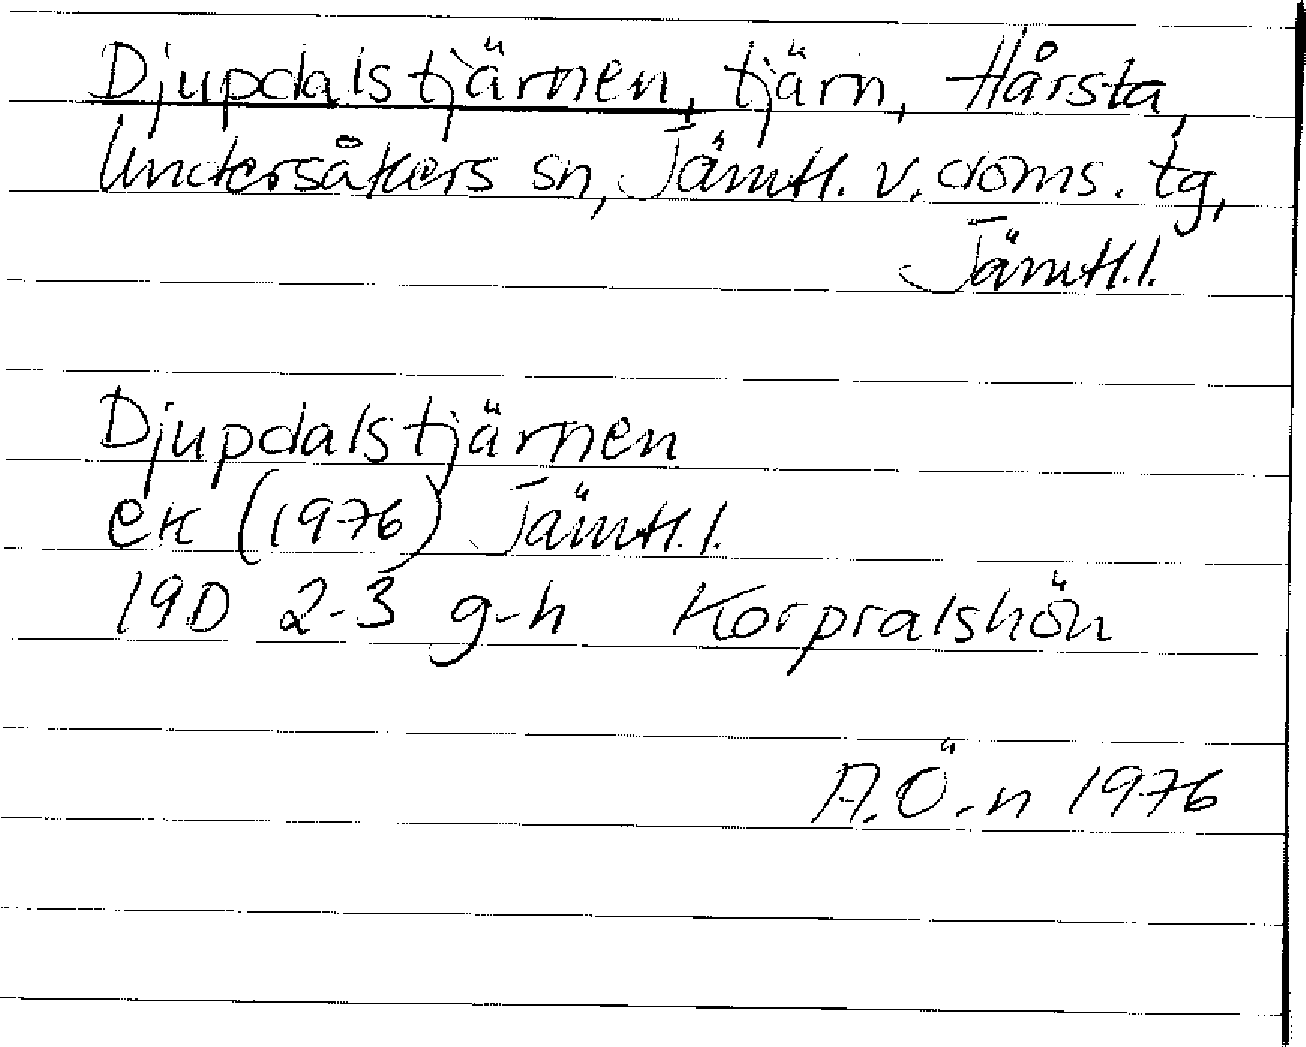 Djupdalstjärnen, tjärn, Hårsta,
Undersåkers sn, Jämtl. v. doms. tg,
Jämtl.l.
Djupdalstjärnen
ek (1976) Jämtl.l.
19D 2-3 g-h Korpralshön
A.Ö-n 1976